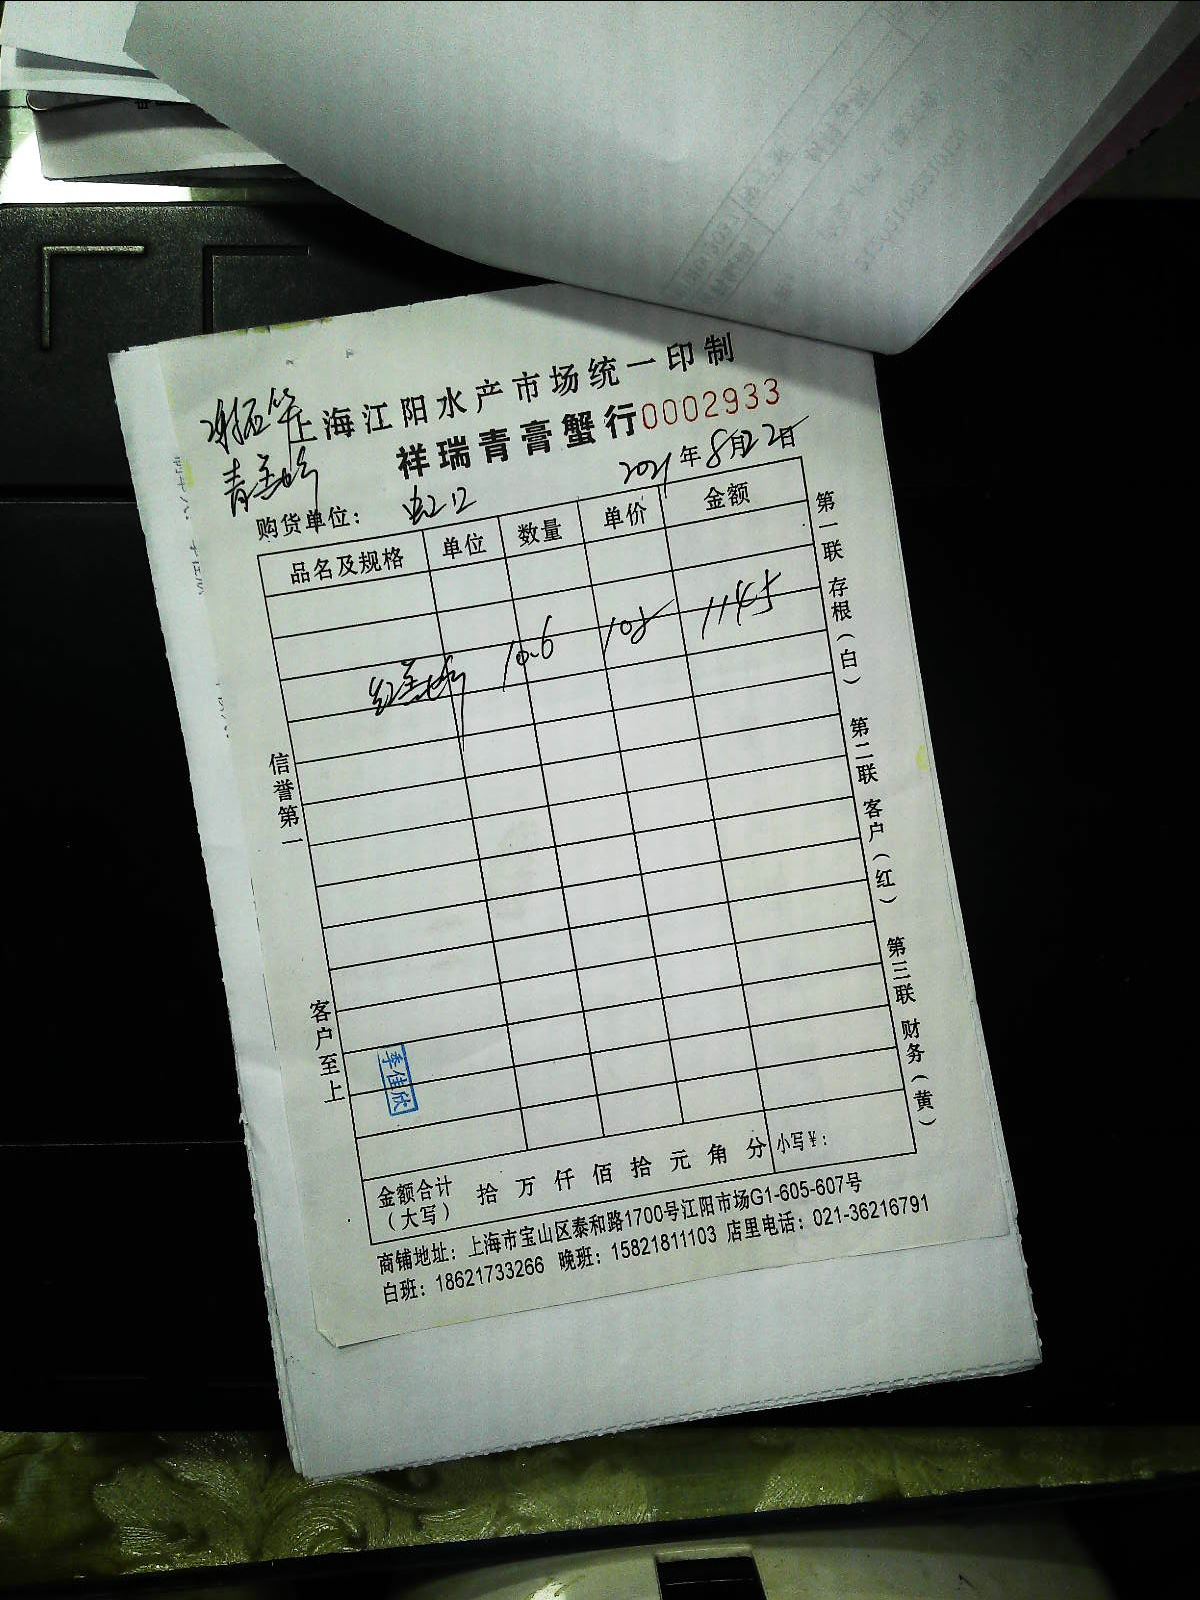 上海江阳水产市场统一印制
祥瑞青膏蟹行 0002933
2021年8月22日
购货单位： 虹口
品名及规格 单位 数量 单价 金额
10.6 108 1145
信誉第一
客户至上
第一联 存根（白）
第二联 客户（红）
第三联 财务（黄）
李佳欣
金额合计（大写） 拾 万 仟 佰 拾 元 角 分 小写¥：
商铺地址：上海市宝山区泰和路1700号江阳市场G1-605-607号
白班：18621733266 晚班：15821811103 店里电话：021-36216791